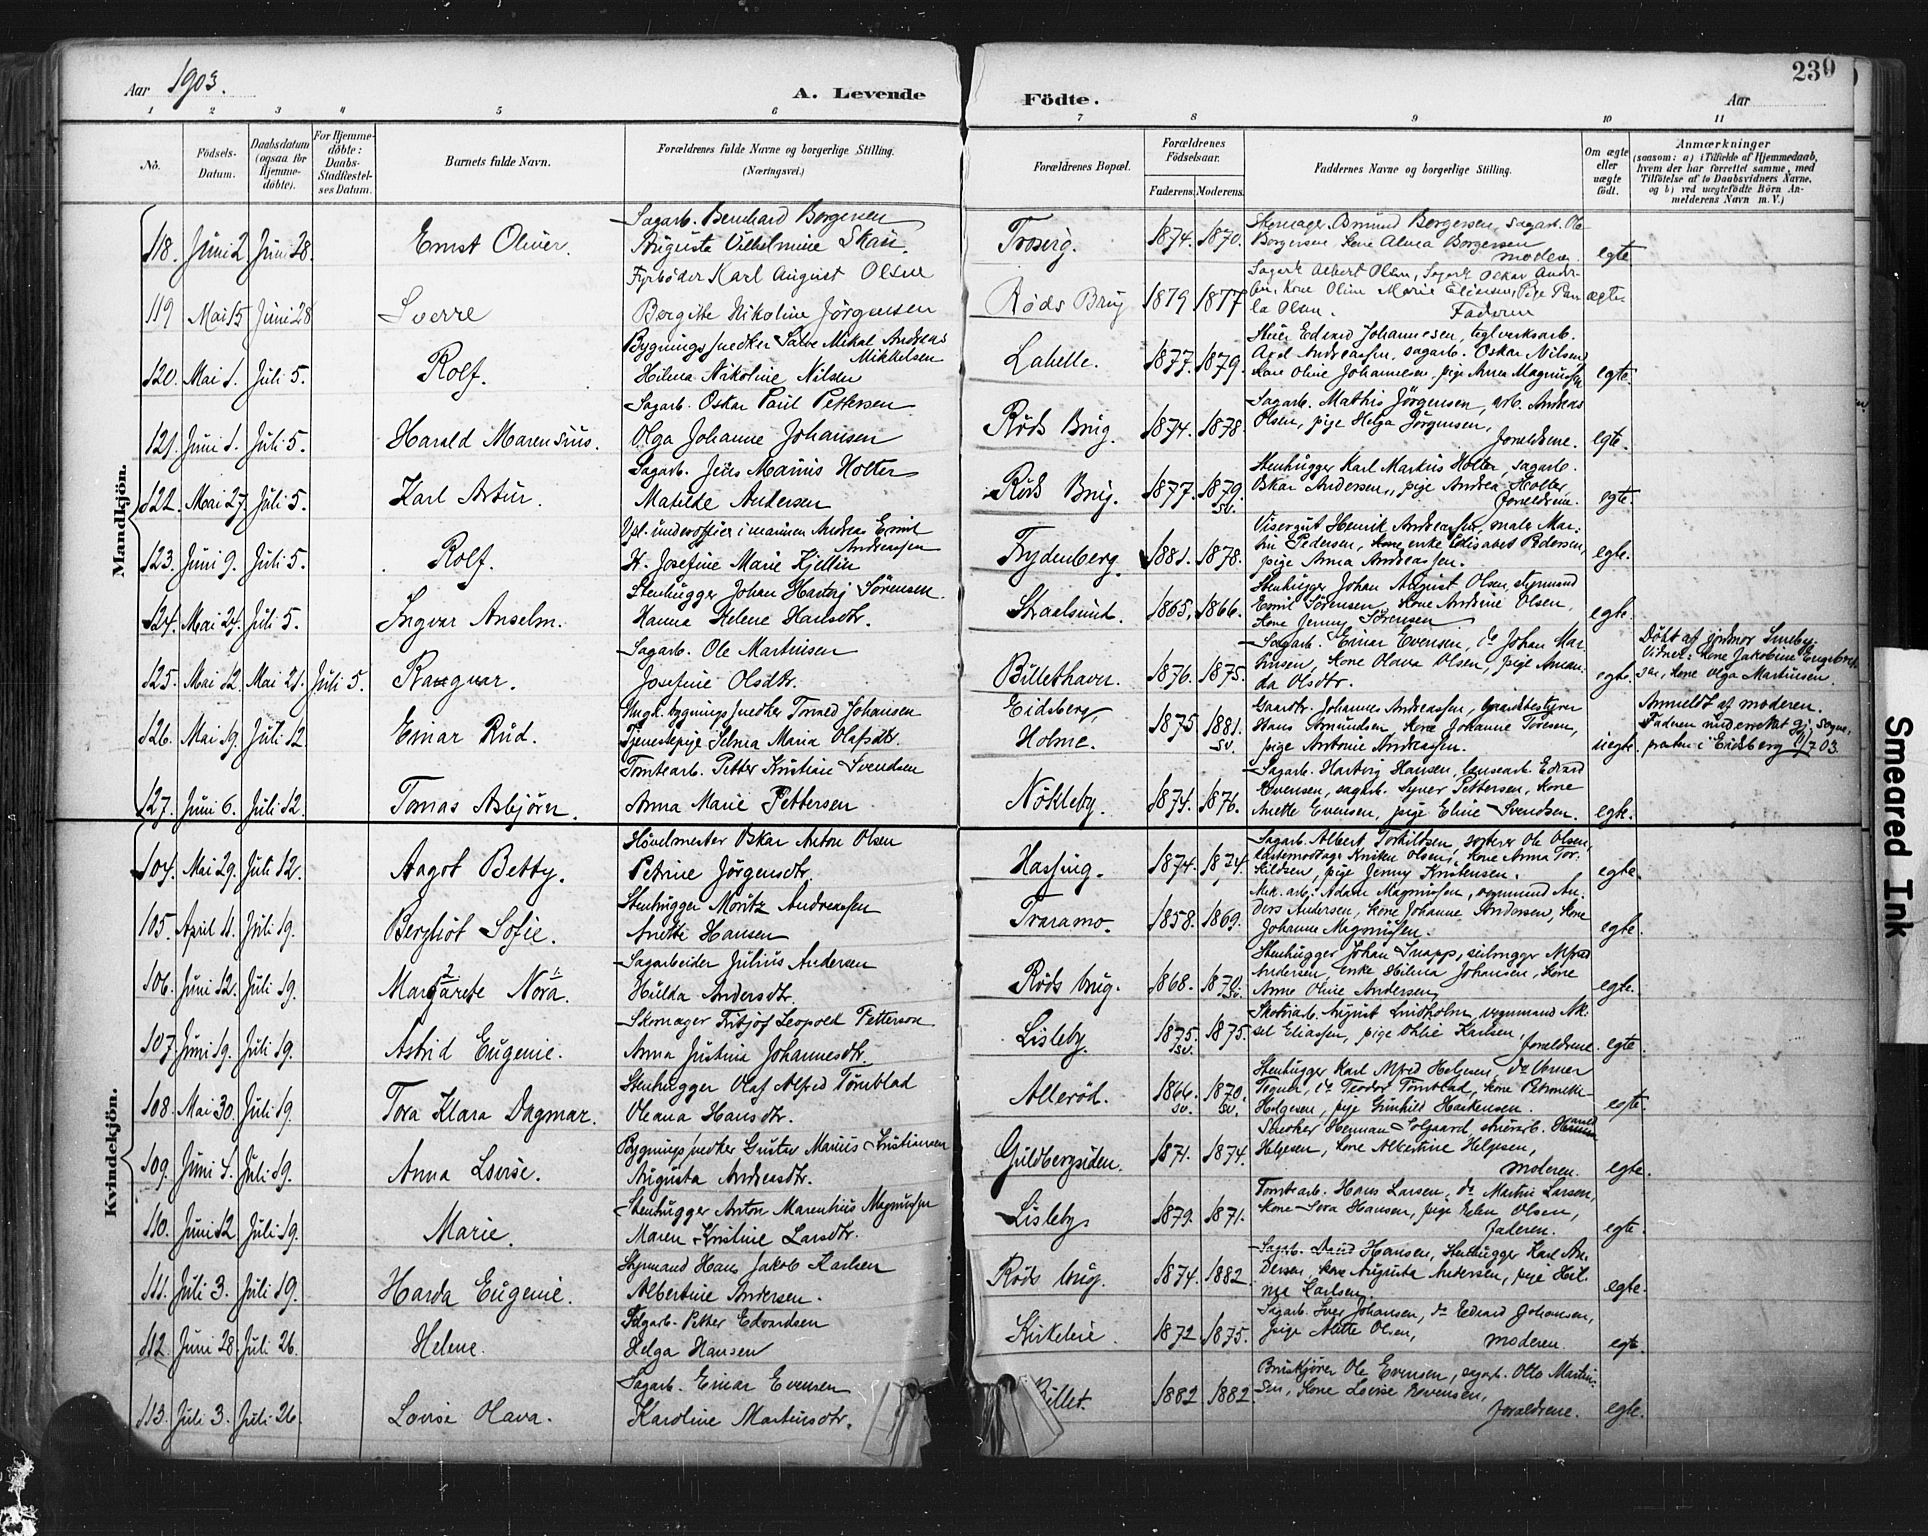 Aar 1903.
A. Levende Födte.
239
Aar
1 2 3 4 5 6 7 8 9 10 11
No.
Födsels-Datum.
Daabsdatum (ogsaa for Hjemme-döbte).
For Hjemme-döbte: Daabs-Stadfæstel-ses Datum.
Barnets fulde Navn.
Forældrenes fulde Navne og borgerlige Stilling. (Næringsvei.)
Forældrenes Bopæl.
Forældrenes Födselsaar.
Faderens. Moderens.
Faddernes Navne og borgerlige Stilling.
Om ægte eller uægte födt.
Anmærkninger
(saasom: a) i Tilfælde af Hjemmedaab, hvem der har forrettet samme, med Tilföielse af to Daabsvidners Navne, og b) ved uægtefödte Börn An-melderens Navn m. V.)
Mandkjön.
118. Juni 2. Juni 28. Ernst Oliver. Sagarb. Bernhard Borgersen
Augusta Vilhelmine Skau. Troserig. 1874. 1870. Skomager Amund Borgersen, sagarb. Ole
Borgersen, kone Alma Borgersen
moderen. egte
119 Mai 15 Juni 28 Sverre Fyrböder Karl August Olsen
Bergitte Nikoline Jörgensen Röds Brug 1879 1877 Sagarb Albert Olsen, Sagarb Oskar Ander-
sen, Kone Oline Marie Eliasen, Pige Pau-
la Olsen. Faderen ægte
120. Mai 1. Juli 5. Rolf. Bygningssnedker Salve Mikal Andreas
Mikkelsen
Hilma Nikoline Nilsen Labelle. 1877. 1879. Edvard Johannesen, teglverksarb.
Axel Andreassen, sagarb. Oskar Nilsen,
kone Oline Johannesen, pige Anna Magnussen egte.
121. Juni 1. Juli 5. Harald Marensius. Sagarb. Oskar Paul Pettersen
Olga Johanne Johansen Röds Brug. 1874. 1878. Sagarb. Mathis Jörgensen, arb. Andreas
Olsen, pige Helga Jörgensen,
foraldrene. egte.
122. Mai 27. Juli 5. Karl Artur. Sagarb. Jens Marius Holter
Matilde Andersen Röds Brug. 1877. 1879. sv. Stenhugger Karl Markus Holter, sagarb.
Oskar Andersen, pige Andrea Holter,
foraldrene. egte.
123. Juni 9. Juli 5. Rolf. underofficer i marinen Andreas Emil
Andreassen
H. Josefine Marie Kjellin Frydenberg. 1881. 1878. Visergut Henrik Andreassen, maler Mar-
tin Pedersen, enke Elisabet Pedersen,
pige Anna Andreassen. egte.
124. Mai 24. Juli 5. Ingvar Anselm. Stenhugger Johan Hartvig Sörensen
Hanna Helene Hansdtr. Straalsund. 1865. 1866. Stenhugger Johan August Olsen, styrmand
Emil Sörensen, kone Andrine Olsen,
kone Jenny Sörensen egte.
125. Mai 12. Mai 21. Juli 5. Ragnar. Sagarb. Ole Martinsen
Josefine Olsdtr. Billethaven. 1876. 1875. Sagarb. Einar Evensen, do Johan Mar-
tinsen, kone Olava Olsen, pige Aman-
da Olsdtr. egte. Döbt af jordmor Smeby.
Vidner: kone Jakobine Engebret-
sen, kone Olga Martinsen.
126. Mai 19. Juli 12 Einar Rud. Ungk. bygningssnedker Torvald Johansen
Tjenestepige Selma Maria Olafsdtr. Eidsberg,
Holme. 1875 1881. sv. Gaardbr. Johannes Andreassen, gaardbestyrer
Hans Amundsen, kone Johanne Toresen,
pige Antonie Andreassen. uegte. Anmeldt af moderen.
Faderen underrettet gj. sogne-
presten i Eidsberg 03.
127. Juni 6. Juli 12. Tomas Asbjörn. Tomtearb. Petter Kristian Svendsen
Anna Marie Pettersen Nökleby. 1874. 1876. Sagarb. Hartvig Hansen, lensearb. Edvard
Evensen, sagarb. Syver Pettersen, kone
Anette Evensen, pige Eline Svendsen. egte.
Kvindekjön.
104. Mai 29. Juli 12. Aagot Betty. Hövelmester Oskar Anton Olsen
Petrine Jörgensdtr. Hassing. 1874. 1874. Sagarb. Albert Torkildsen, sorterer Ole Olsen,
Olsen, kone Anna Tor-
kildsen, pige Jenny Kristensen. egte.
105. April 11. Juli 19. Bergliot Sofie. Stenhugger Moritz Andreassen
Anette Hansen Traramo. 1858. 1869. arb. Adam Magnussen, vognmand An-
ders Andersen, kone Johanne Andersen, kone
Johanne Magnussen. egte.
106. Juni 12. Juli 19. Margarete Nora. Sagarbeider Julius Andersen
Hulda Andersdtr. Röds brug. 1868. 1870. sv. Stenhugger Johan Snapp, seilmager Alfred
Andersen, enke Hilma Johansen, kone
Anne Oline Andersen. egte.
107. Juni 9. Juli 19. Astrid Eugenie. Skomager Fritjof Leopold Petterson
Anna Justina Johannesdtr. Lisleby. 1875. sv. 1875. Skotöiarb. August Lindholm, vognmand Ak-
sel Eliassen, pige Othlie Karlsen,
foraldrene. egte.
108. Mai 30. Juli 19. Tora Klara Dagmar. Stenhugger Olaf Alfred Törnblad
Oleana Hansdtr. Alleröd. 1866 sv. 1870. sv. Stenhugger Karl Alfred Helgesen, do Verner
Tegner, do Teodor Törnblad, kone Petronelle
Helgesen, pige Gunhild Haakensen. egte.
109. Juni 4. Juli 19. Anna Lovise. Bygningssnedker Gustav Marius Kristiansen
Augusta Andreasdtr. Guldbergsiden. 1871. 1874. Snedker Herman Solgaard,
Helgesen, kone Albertine Helgesen,
moderen. egte.
110. Juni 12 Juli 19. Marie. Stenhugger Anton Marentius Magnussen
Maren Kristine Larsdtr. Lisleby. 1879. 1871. Tomtearb. Hans Larsen, do Martin Larsen,
kone Lova Hansen, pige Elen Olsen,
faderen. egte.
111. Juli 3. Juli 19. Harda Eugenie. Styrmand Hans Jakob Karlsen
Albertine Andersen. Röds brug. 1874. 1882. Sagarb. David Hansen, stenhugger Karl An-
dersen, kone Augusta Andersen, pige Hil-
ma Karlsen. egte.
112. Juni 28. Juli 26. Helene. Sagarb. Petter Edvardsen
Helga Hansen Kirkeleie. 1872. 1875. Sagarb. Iver Johansen, do Edvard Johansen,
pige Alette Olsen,
moderen. egte.
113. Juli 3. Juli 26. Lovise Olava. Sagarb. Einar Evensen
Karoline Martinsdtr. Billet. 1882 1882. Bruskjörer Ole Evensen, sagarb. Otto Martin-
sen, kone Lovise Evensen,
foraldrene. egte.
Smeared Ink